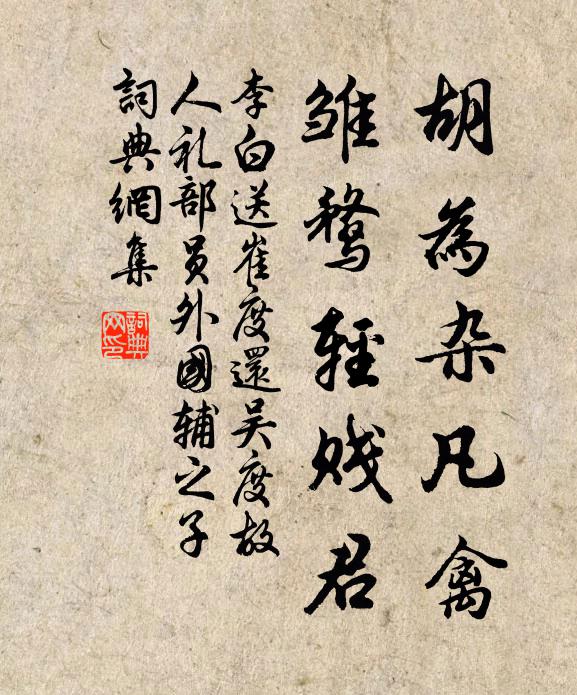 胡為杂凡禽
雏鶩轻贱君
李白送崔度還吴度故
人礼部员外國辅之子
詞典網集
詞典
网印